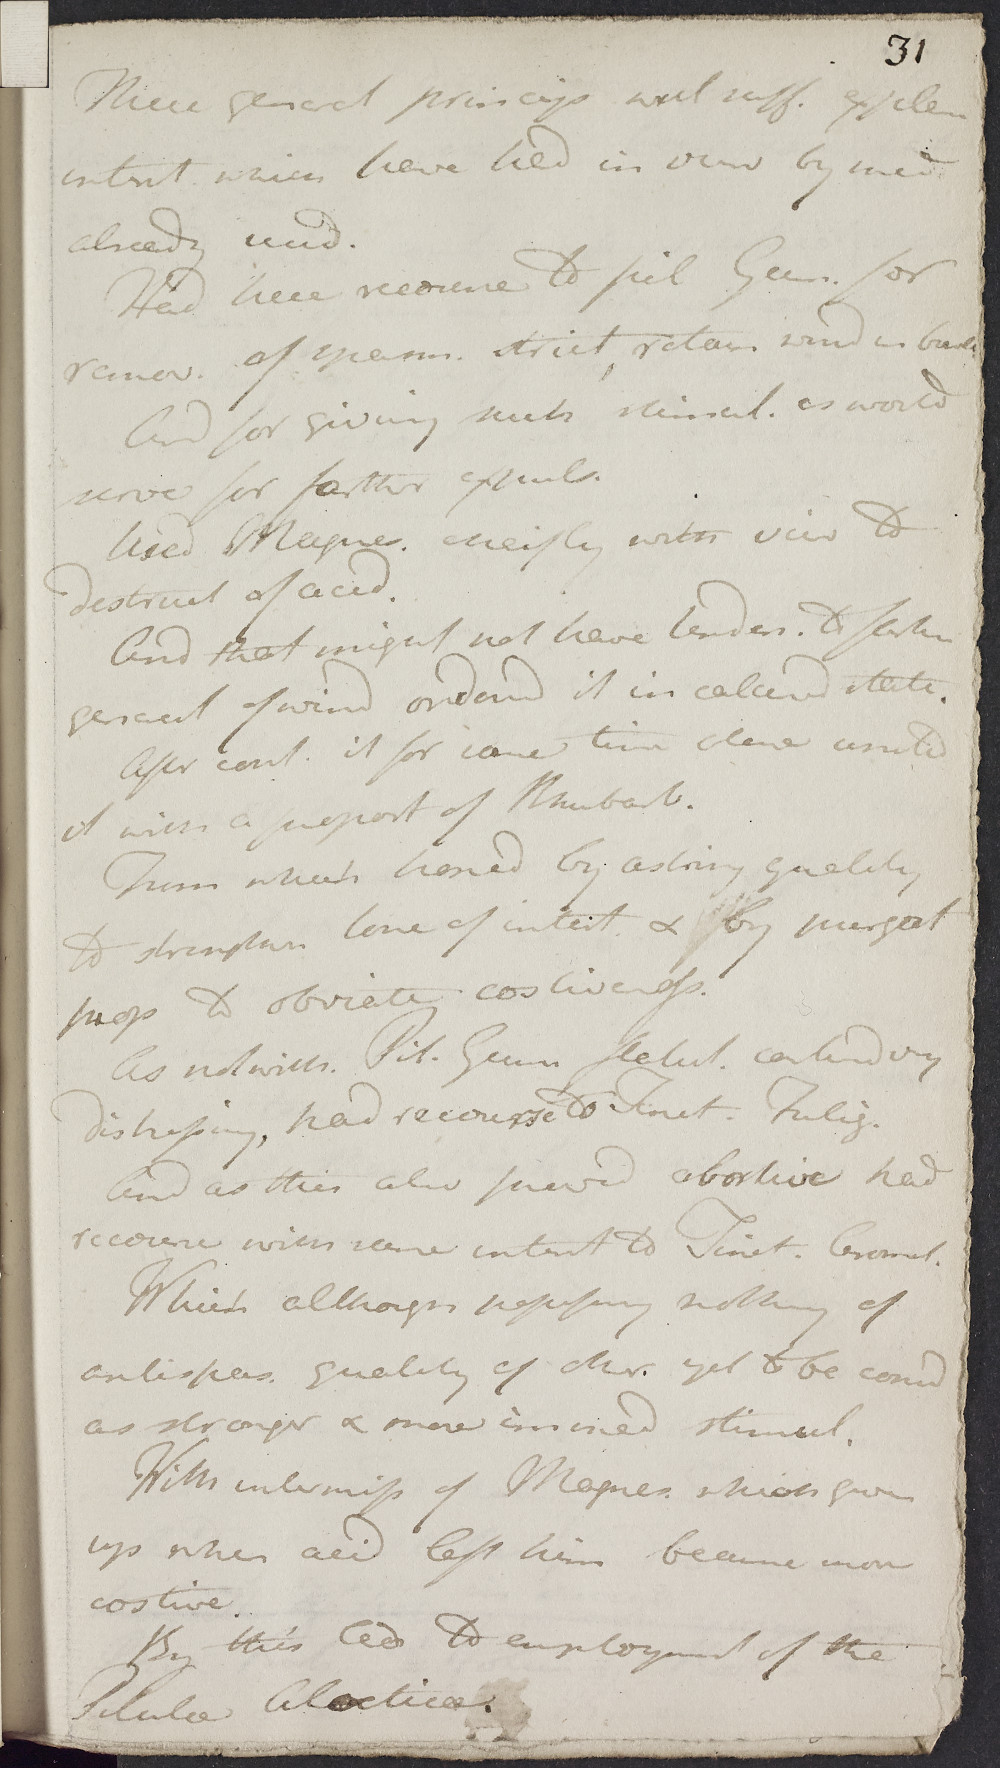 31
These general princips will suff. explain
intent which have had in view by med
already used.
Had here recourse to pil Gum. for
remov. of spasm. strict, retain wind in bowels
And for giving such stimul. as would
serve for farther expuls.
Used Magnes. cheifly with view to
destruct of acid.
And that might not have tenden. to farther
generat of wind ordered it in calcined state.
After cont. it for some time alone united
it with a proport of Rhubarb.
From which hoped by astring quality
to strengthen tone of intest. & by purgat
prop to obviate costiveness.
As notwith. Pil. Gum flatul. continued very
distressing, had recourse to Tinct. Fulig.
And as this also proved abortive had
recourse with same intent to Tinct. Aromat.
Which although possessing nothing of
antispas. quality of other. yet to be consd
as stronger & more immed stimul.
With intermiss of Magnes. which given
up when acid left him became more
costive.
By this led to employment of the
Pilulae Aloeticae.